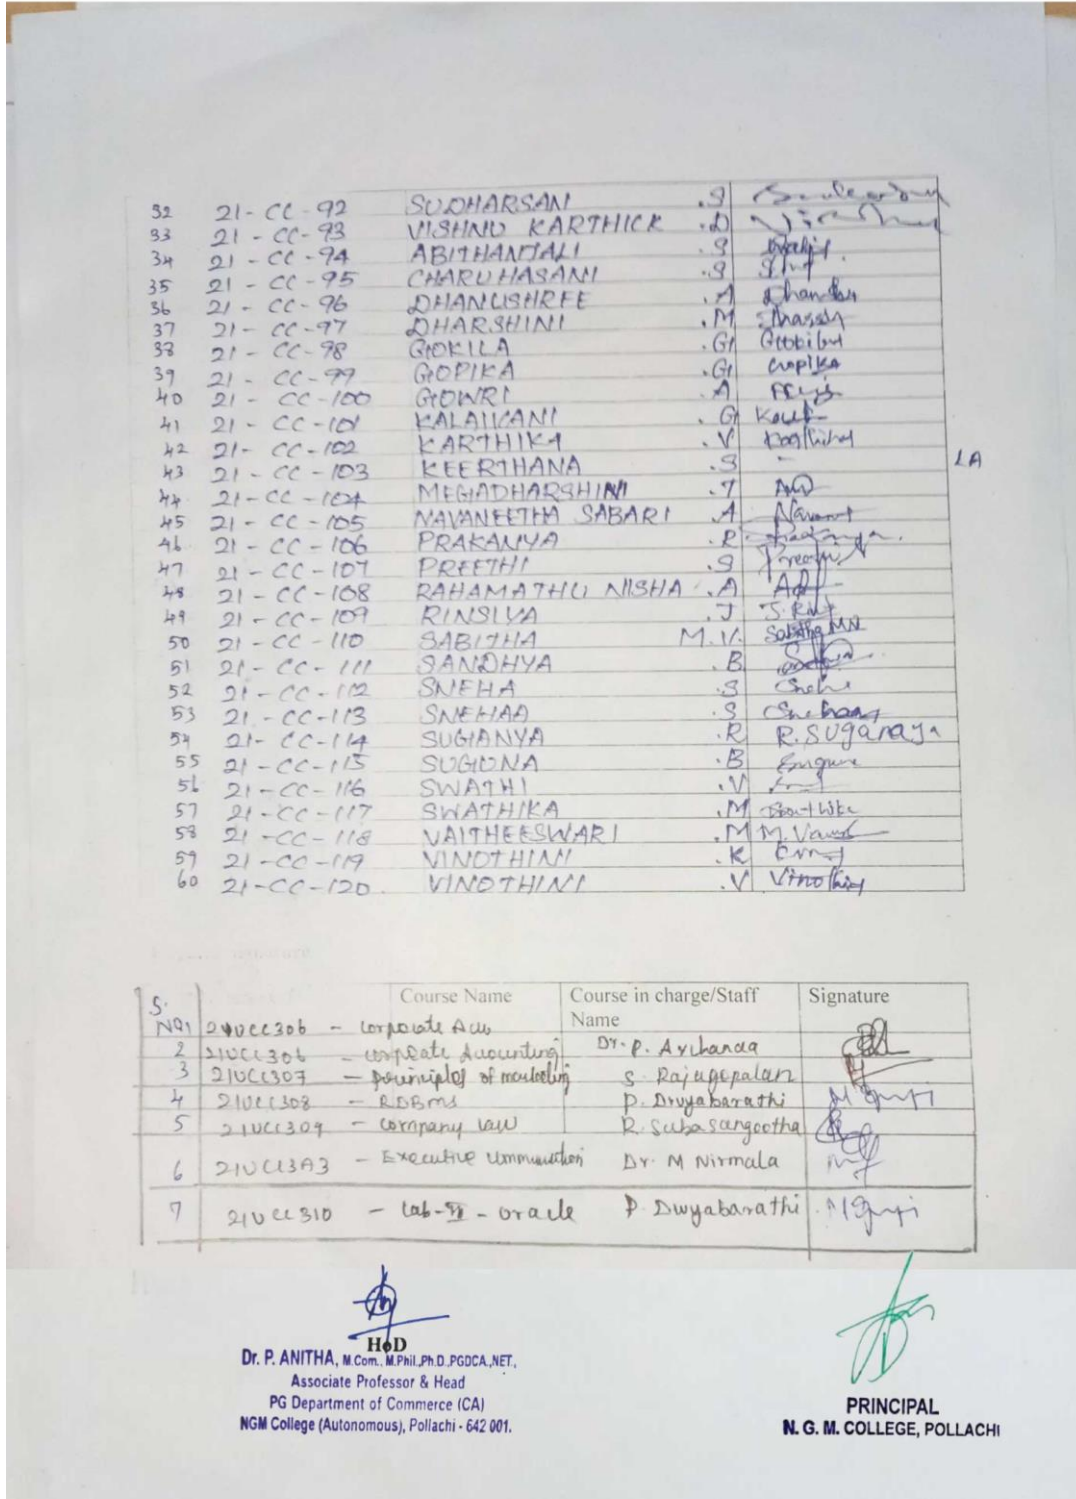 32 21-CC-92 SUDHARSAN .S
33 21-CC-93 VISHNU KARTHICK .D
34 21-CC-94 ABITHANJALI .S
35 21-CC-95 CHARUHASANI .S
36 21-CC-96 DHANUSHREE .A
37 21-CC-97 DHARSHINI .M
38 21-CC-98 GOKILA .G
39 21-CC-99 GOPIKA .G Gopika
40 21-CC-100 GOWRI .A
41 21-CC-101 KALAIVANI .G
42 21-CC-102 KARTHIKA .V
43 21-CC-103 KEERTHANA .S - LA
44 21-CC-104 MEGADHARSHINI .T
45 21-CC-105 NAVANEETHA SABARI .A
46 21-CC-106 PRAKANYA .R
47 21-CC-107 PREETHI .S
48 21-CC-108 RAHAMATHU NISHA .A
49 21-CC-109 RINSIYA .J
50 21-CC-110 SABITHA M.V. Sabitha MV
51 21-CC-111 SANDHYA .B
52 21-CC-112 SNEHA .S
53 21-CC-113 SNEHAA .S
54 21-CC-114 SUGANYA .R R.Suganaya
55 21-CC-115 SUGUNA .B
56 21-CC-116 SWATHI .V
57 21-CC-117 SWATHIKA .M
58 21-CC-118 VAITHEESWARI .M
59 21-CC-119 VINOTHINI .K
60 21-CC-120 VINOTHINI .V Vinothini
S. Course Name Course in charge/Staff Signature
Name
No1 21UCC306 - Corporate Acc
2 21UCC306 - corporate Accounting Dr. P. Archanaa
3 21UCC307 - principles of marketing S. Rajagopalan
4 21UCC308 - RDBMS P. Divyabarathi
5 21UCC309 - company law R. Subasangeetha
6 21UCC3A3 - Executive communication Dr. M Nirmala
7 21UCC310 - Lab-II - Oracle P. Divyabarathi
HoD
Dr. P. ANITHA, M.Com., M.Phil.,Ph.D.,PGDCA.,NET.,
Associate Professor & Head
PG Department of Commerce (CA)
NGM College (Autonomous), Pollachi - 642 001.
PRINCIPAL
N. G. M. COLLEGE, POLLACHI